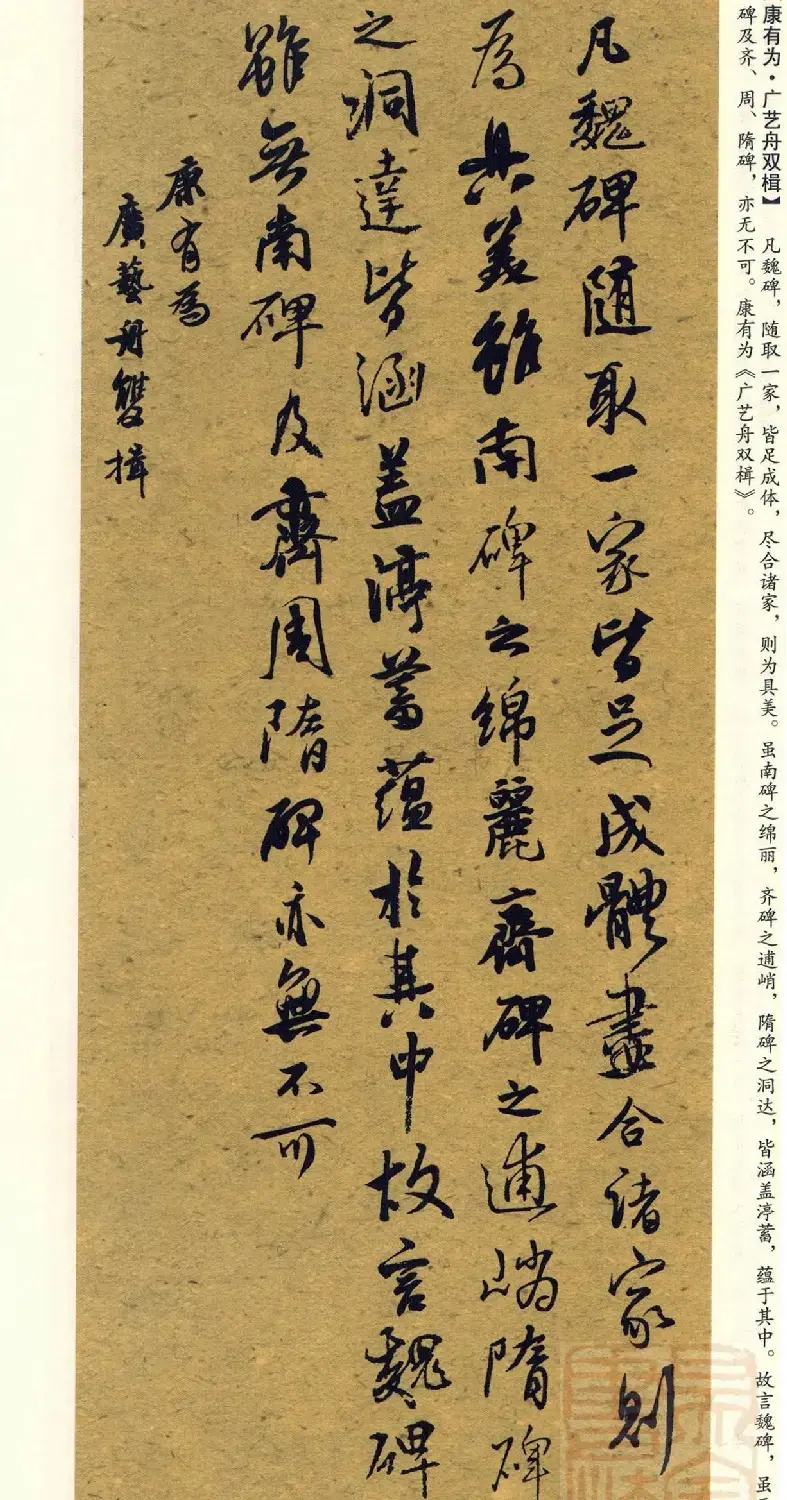 康有为·广艺舟双楫】 凡魏碑，随取一家，皆足成体，尽合诸家，则为具美。虽南碑之绵丽，齐碑之逋峭，隋碑之洞达，皆涵盖渟蓄，蕴于其中。故言魏碑，虽
碑及齐、周、隋碑，亦无不可。康有为《广艺舟双楫》。
凡魏碑随取一家皆足成體盡合諸家則
為具美雖南碑之綿麗齊碑之逋峭隋碑
之洞達皆涵盖渟蓄蕴於其中故言魏碑
雖無南碑及齊周隋碑亦無不可
康有為
廣藝舟雙楫